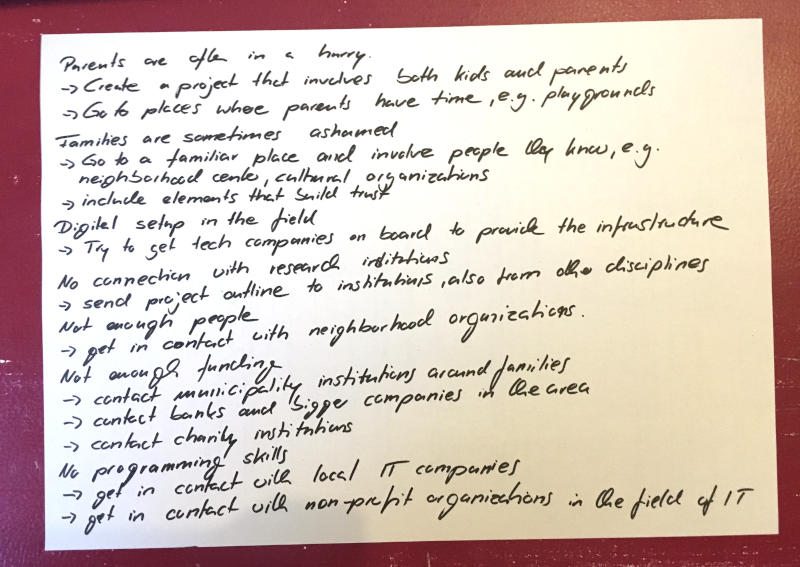 Parents are often in a hurry.
→ Create a project that involves both kids and parents
→ Go to places where parents have time, e.g. playgrounds
Families are sometimes ashamed
→ Go to a familiar place and involve people they know, e.g.
neighborhood center, cultural organizations
→ include elements that build trust
Digital setup in the field
→ Try to get tech companies on board to provide the infrastructure
No connection with research institutions
→ send project outline to institutions, also from other disciplines
Not enough people
→ get in contact with neighborhood organizations.
Not enough funding
→ contact municipality institutions around families
→ contact banks and bigger companies in the area
→ contact charity institutions
No programming skills
→ get in contact with local IT companies
→ get in contact with non-profit organizations in the field of IT